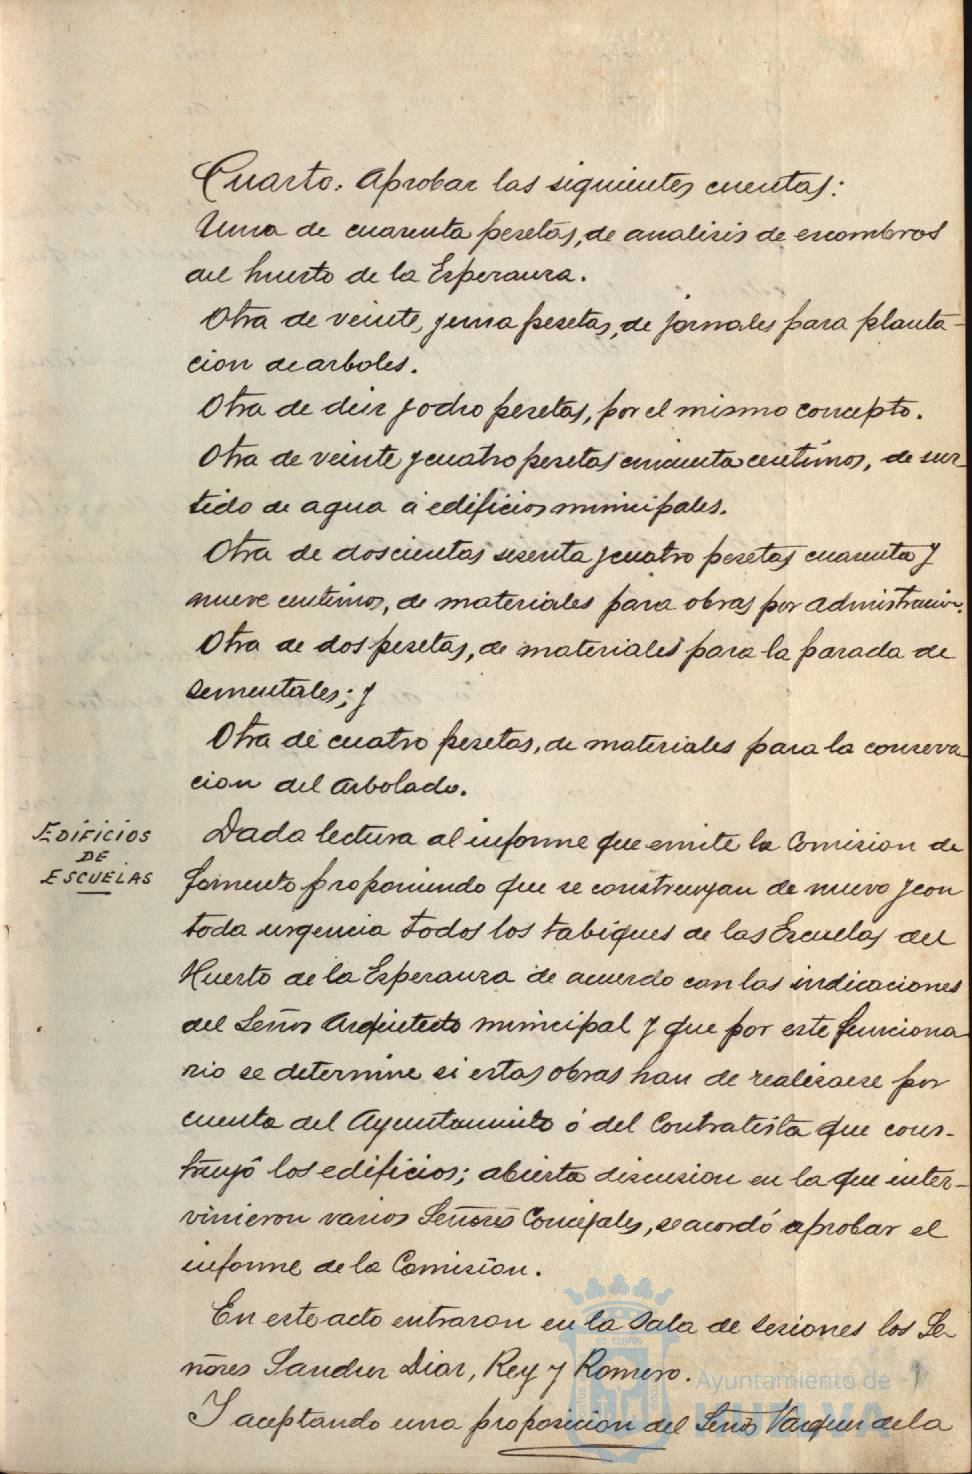 Cuarto. Aprobar las siguientes cuentas:
Una de cuarenta pesetas, de analisis de escombros
del huerto de la Esperanza.
Otra de veinte y una pesetas, de jornales para planta-
cion de arboles.
Otra de diez y ocho pesetas, por el mismo concepto.
Otra de veinte y cuatro pesetas cincuenta centimos, de sur-
tido de agua á edificios municipales.
Otra de doscientas sesenta y cuatro pesetas cuarenta y
nueve centimos, de materiales para obras por admistracion.
Otra de dos pesetas, de materiales para la parada de
sementales; y
Otra de cuatro pesetas, de materiales para la conserva
cion del arbolado.
EDIFICIOS
DE
ESCUELAS
Dada lectura al informe que emite la Comision de
fomento proponiendo que se construyan de nuevo y con
toda urgencia todos los tabiques de las Escuelas del
Huerto de la Esperanza de acuerdo con las indicaciones
del Señor Arquitecto municipal y que por este funciona
rio se determine si estas obras han de realizarse por
cuenta del Ayuntamiento ó del Contratista que cons-
truyó los edificios; abierta discusion en la que inter-
vinieron varios Señores Concejales, se acordó aprobar el
informe de la Comisión.
En este acto entraron en la Sala de sesiones los Se-
ñores Sanchez Diaz, Rey y Romero.
Y aceptando una proposicion del Señor Vazquez de la
Ayuntamiento de
HUELVA